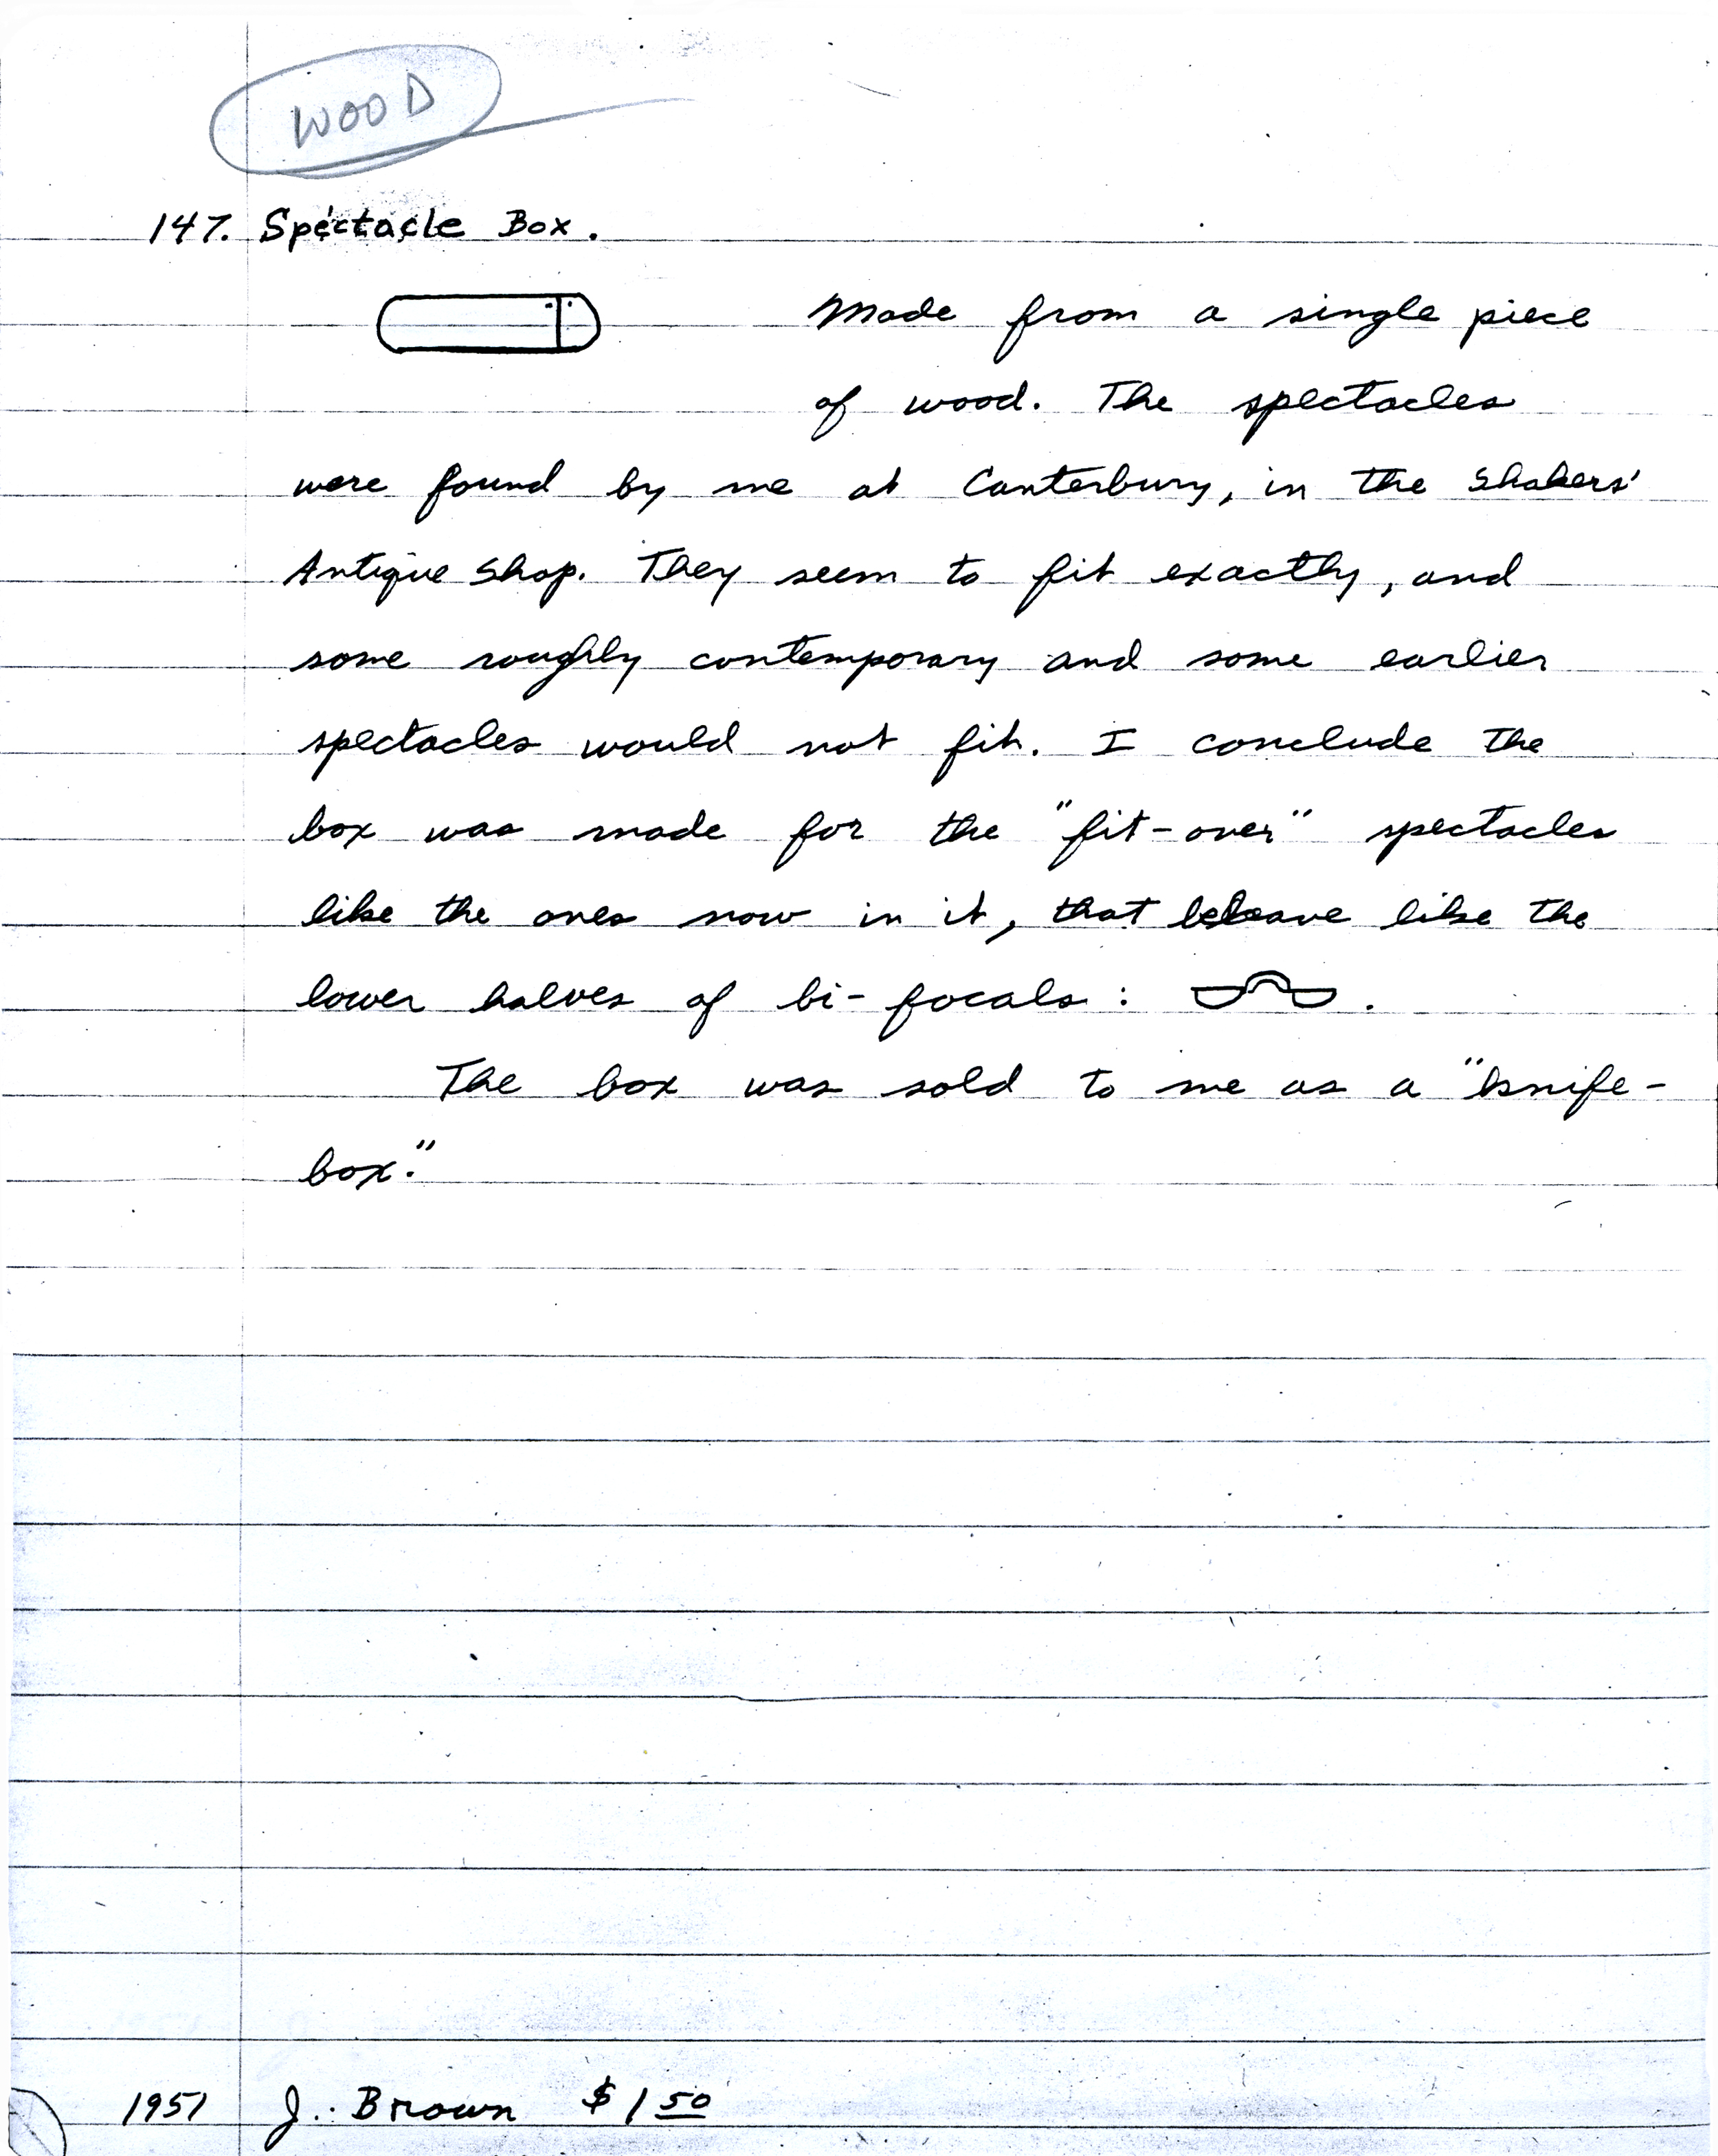 WOOD
147. Spectacle Box.
Made from a single piece
of wood. The spectacles
were found by me at Canterbury, in the Shakers'
Antique Shop. They seem to fit exactly, and
some roughly contemporary and some earlier
spectacles would not fit. I conclude the
box was made for the "fit-over" spectacles
like the ones now in it, that like the
lower halves of bi-focals: .
The box was sold to me as a "knife-
box."
1951 J. Brown $1 50